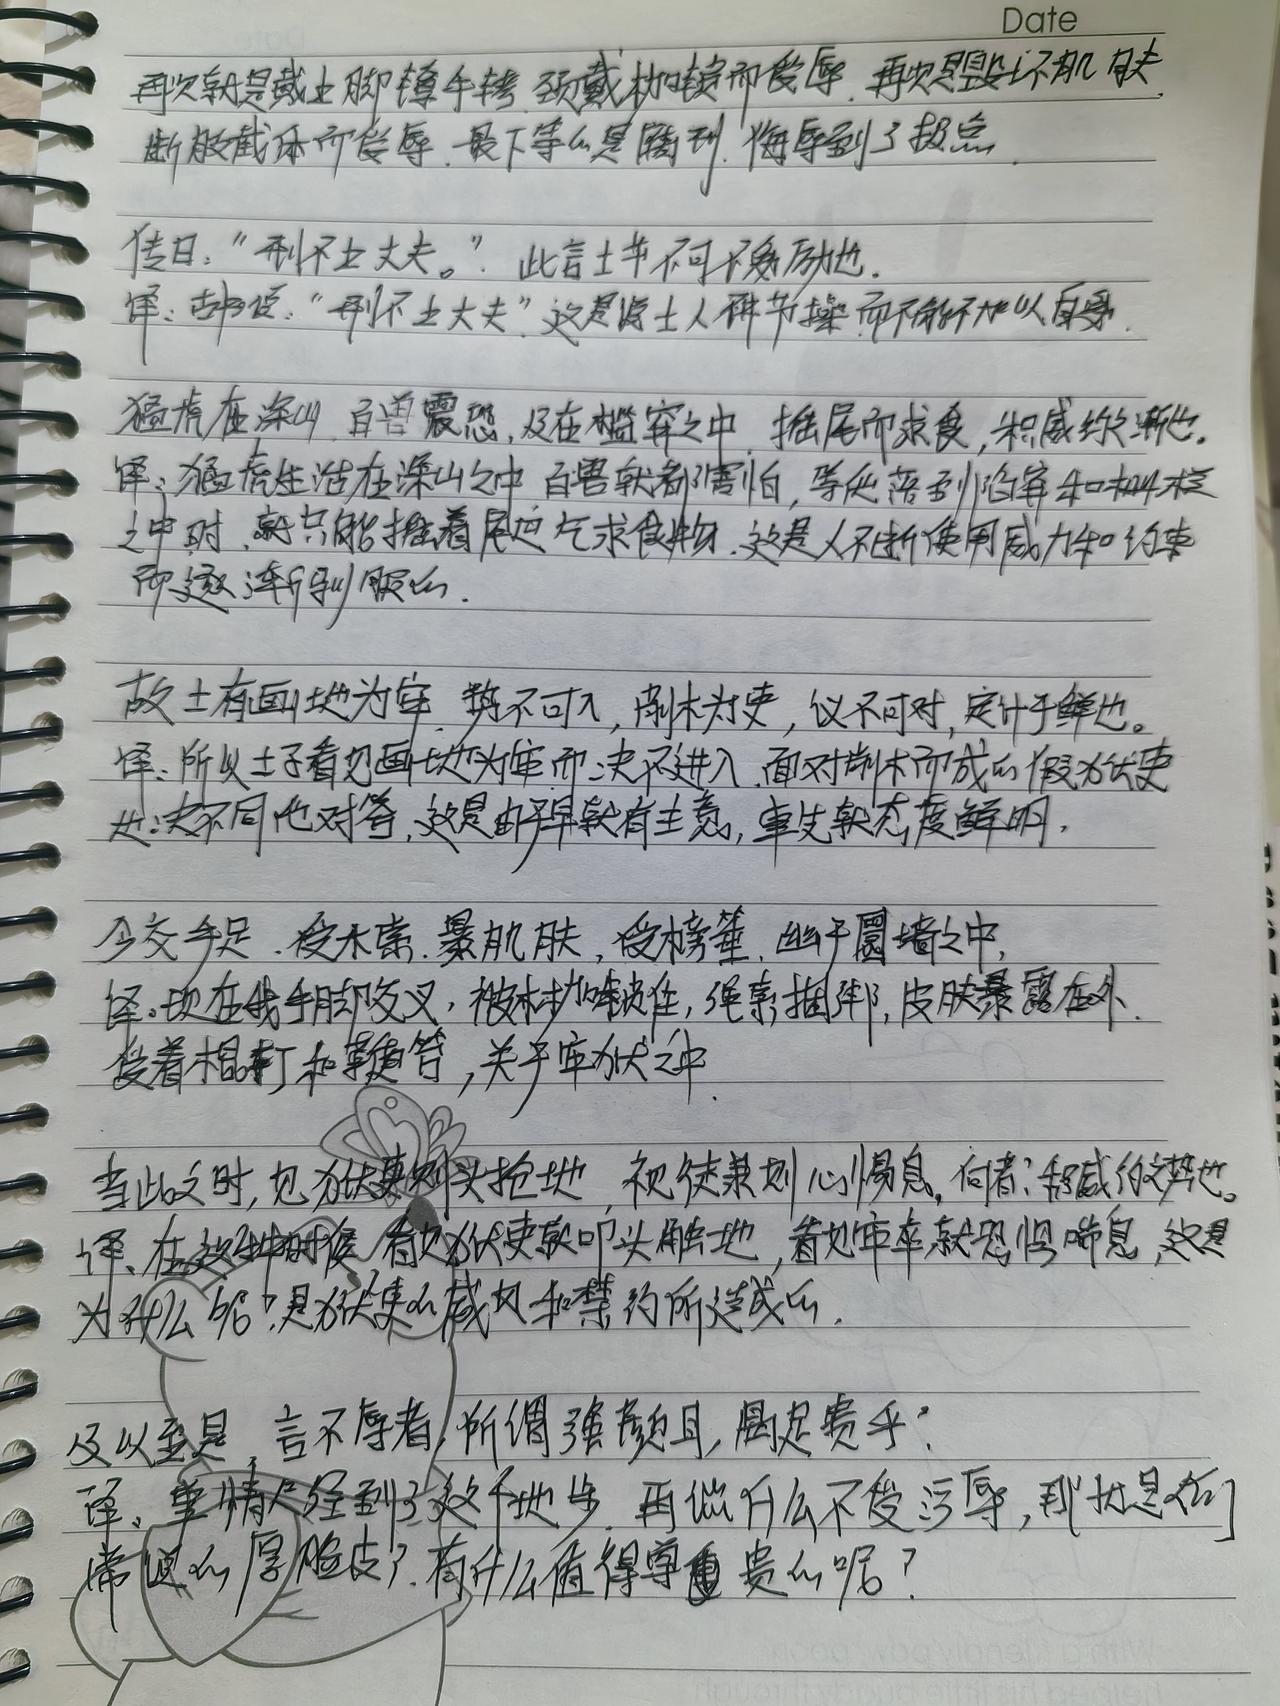 Date
再次就是戴上脚镣手铐 颈戴枷锁而受辱. 再次是毁坏肌肤
断肢截体而受辱. 最下等的是腐刑. 侮辱到了极点.
传曰: "刑不上大夫。". 此言士节不可不勉励也.
译: 古书说: "刑不上大夫" 这是说士人讲节操 而不能不加以自勉.
猛虎在深山 百兽震恐, 及在槛穽之中 摇尾而求食, 积威约之渐也.
译: 猛虎生活在深山之中 百兽就都害怕, 等他落到陷穽和栅栏
之中时. 就只能摇着尾巴乞求食物. 这是人不断使用威力和约束
而逐渐驯服的.
故士有画地为牢 势不可入, 削木为吏, 议不可对, 定计于鲜也。
译: 所以士子看见画地为牢而决不进入, 面对削木而成的假狱吏
也决不同他对答, 这是由于早就有主意, 事先就态度鲜明.
今交手足. 受木索. 暴肌肤, 受榜箠, 幽于圜墙之中,
译: 现在我手脚交叉, 被木枷锁住, 绳索捆绑, 皮肤暴露在外.
受着棍打和鞭笞, 关于牢狱之中.
当此之时, 见狱吏则头抢地, 视徒隶则心惕息。何者? 积威约之势也。
译. 在这种时候 看见狱吏就叩头触地, 看见牢卒就恐惧喘息, 这是
为什么呢? 是狱吏的威风和禁约所造成的.
及以至是, 言不辱者, 所谓强颜耳, 曷足贵乎?
译. 事情已经到了这个地步. 再做什么不受污辱, 那就是人们
常说的厚脸皮了. 有什么值得尊重贵的呢?